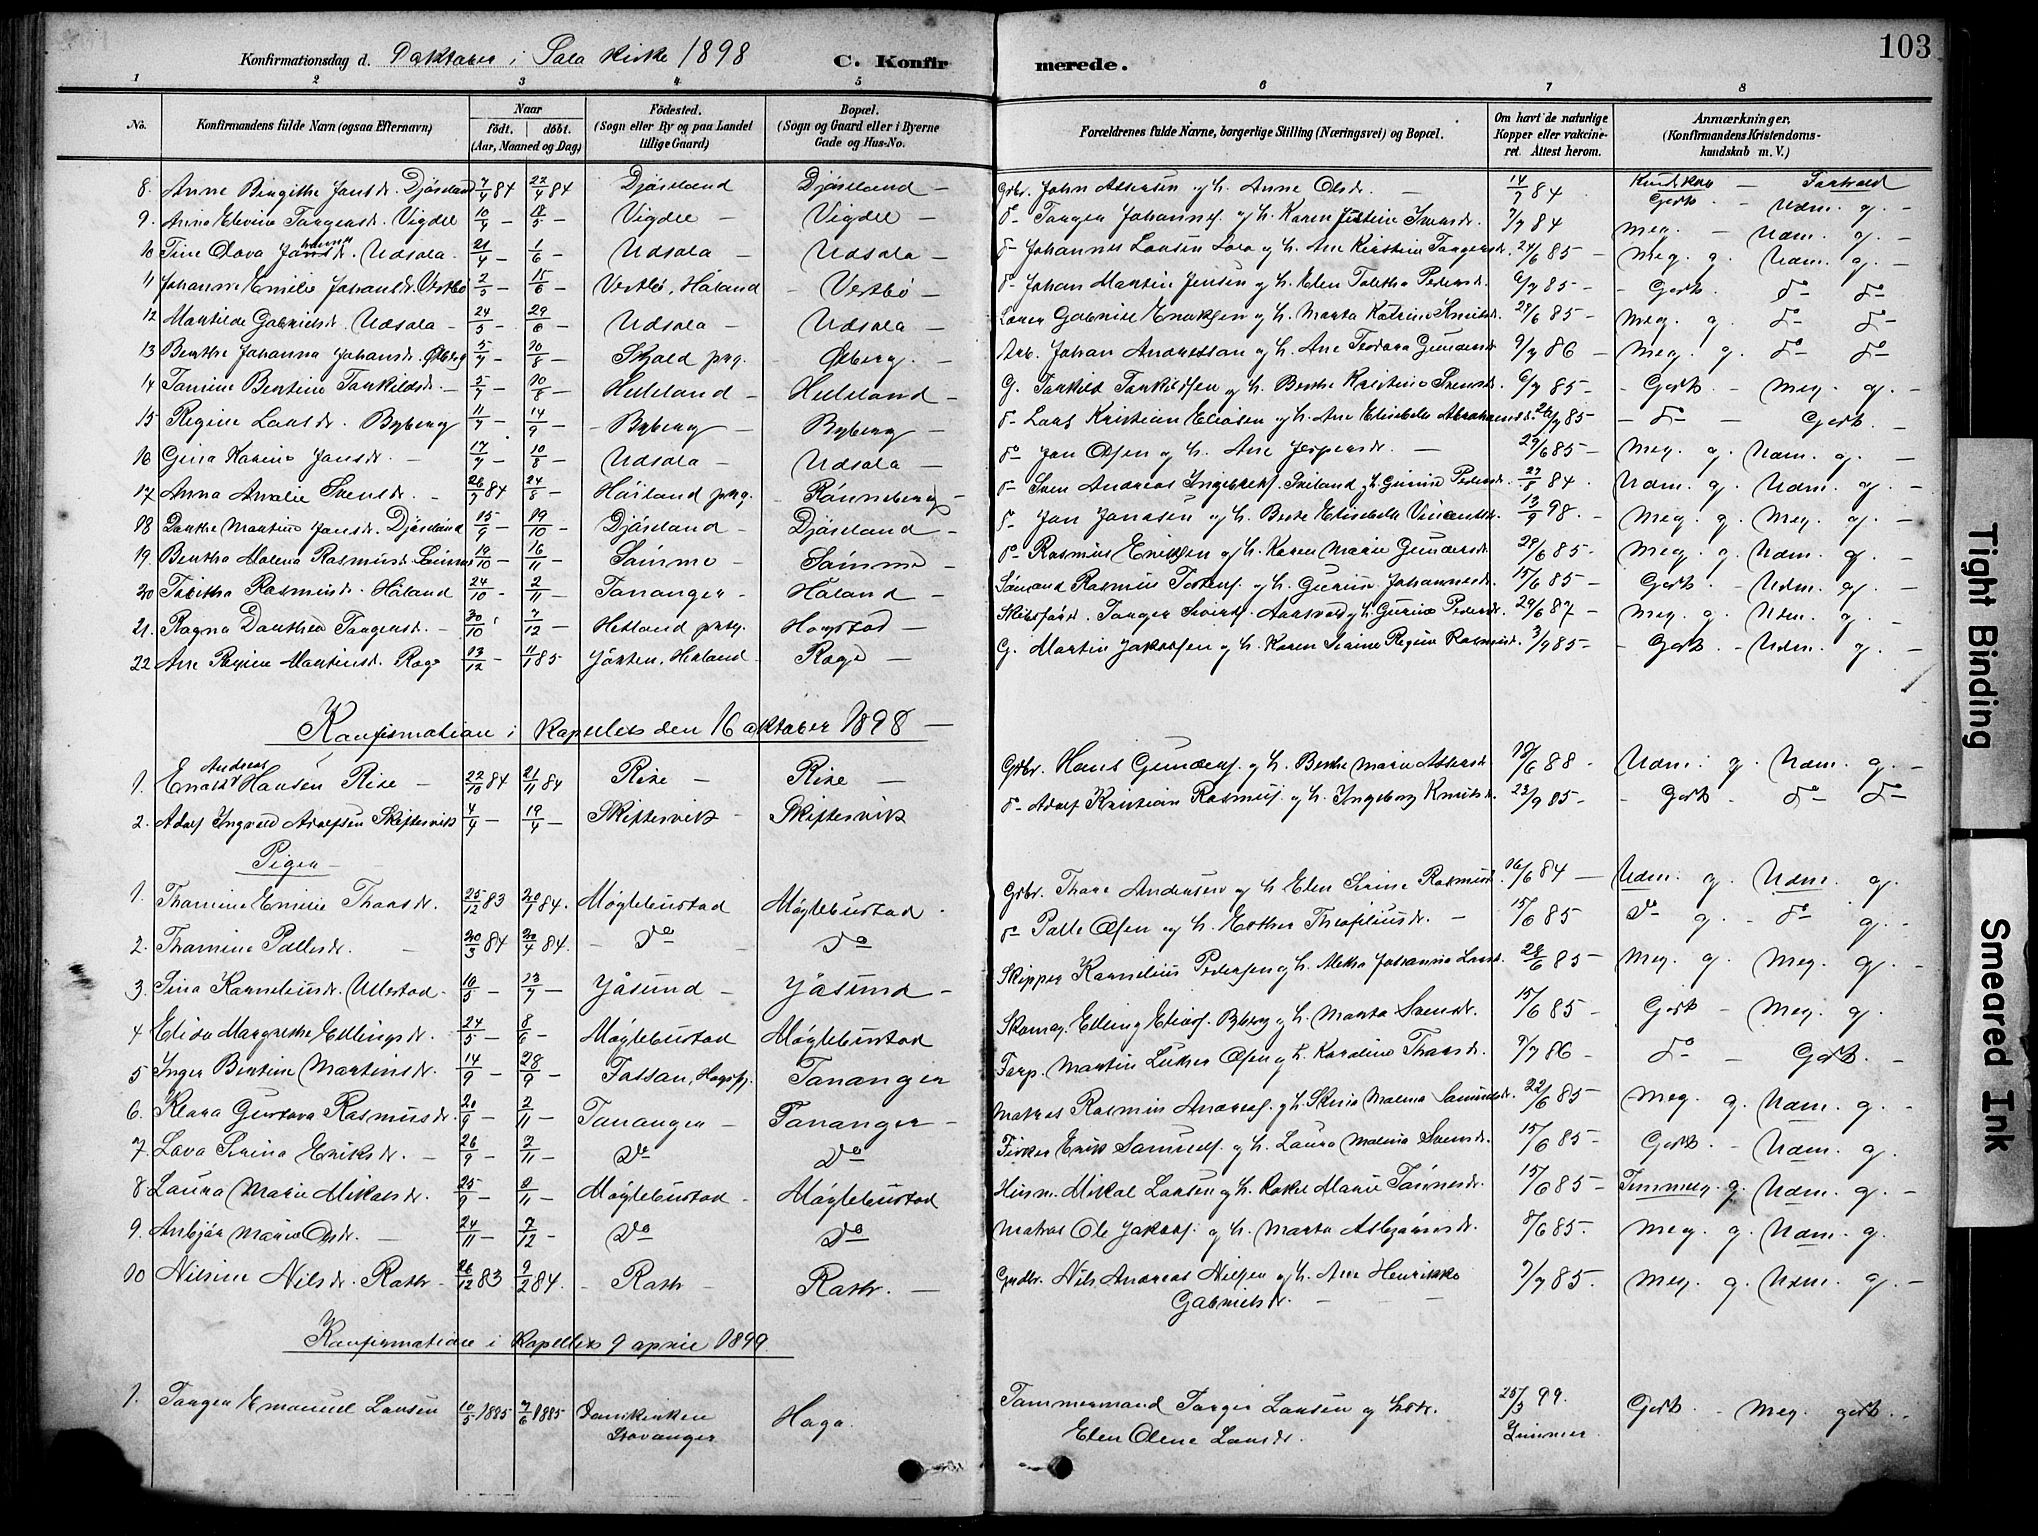 103
Konfirmationsdag d. 9 oktober i Sola Kirke 1898 C. Konfirmerede.
1 2 3 4 5 6 7 8
No. Konfirmandens fulde Navn (ogsaa Efternavn) Naar født. døbt. (Aar, Maaned og Dag) Fødested. (Sogn eller By og paa Landet tillige Gaard) Bopæl. (Sogn og Gaard eller i Byerne Gade og Hus-No. Forældrenes fulde Navne, borgerlige Stilling (Næringsvei) og Bopæl. Om havt de naturlige Kopper eller vakcineret. Attest herom. Anmærkninger, (Konfirmandens Kristendomskundskab m. V.)
8. Anne Birgithe Jansdr. Djösland 7/4 84 22/4 84 Djösland – Djösland – Grbr. John Assersen og h. Anne Olsdr. – 14/7 84 Godt –
9. Anna Elvine Torgersdr. Vigdel 10/4 – 18/5 – Vigdel – Vigdel – do Torger Johannes. og h. Karen Justine Iversdr. 7/7 84 Meg. – Udm. g. –
10 Tine Olava Johannsdr. Udsola 21/4 – 1/6 – Udsola – Udsola – do Johannes Larsen Sola og h. Ane Kirstine Torgersdr. 24/6 85 – Meg. g. Udm. g. –
11 Johanne Emilie Johansdr. Vestbö 2/5 – 15/6 – Vestbö, Håland – Vestbö – do Johan Martin Jensen og h. Elen Tabitha Pedersdr. 6/7 85 – Godt. do do
12 Mathilde Gabrielsdr. Udsola – 24/5 – 29/6 – Udsola – Udsola – Gabriel Enoksen og h. Marta Katrine Knutsdr. 29/6 85 – Meg. g. do do
13 Berthe Johanna Johansdr. Ødberg 5/7 – 10/8 – Skjold prg. Ødberg. – Arb. Johan Andreassen og h. Ane Teodora Gundersdr. 9/7 86 – Meg. g. do do
14 Tomine Bertine Torkildsdr. – 5/7 – 10/8 – Helleland – Helleland – G. Torkild Torkildsen og h. Berthe Kristine Svensdr. 6/7 85 – Godt – Meg. g. –
15 Regine Larsdr. Byberg 11/7 – 14/9 – Byberg – Byberg – do Lars Kristian Eliasen og h. Ane Elisabeth Abrahamsdr. 26/7 85 – do – Godt. –
16 Gina Karine Jansdr. – 17/7 – 10/8 – Udsola – Udsola – do Jan Olsen og h. Ane Jespersdr. – 29/6 85 – Meg. g. Udm. g. –
17 Anna Amalie Svensdr. – 26/7 84 24/8 – Höiland prg. Rönneberg – do Sven Andreas Ingebretsen og h. Gurine Pedersdr. 27/8 84 – Udm. g. Udm. g. –
18 Dorthe Martine Jansdr. Djösland 15/9 – 19/10 – Djösland Djösland – do Jan Jonasen og h. Berte Elisabeth Vincentsdr. 13/9 98. – Meg. g. Meg. g. –
19. Bertha Malena Rasmusdr. Sömme 10/10 – 16/11 – Sömme – Sömme – do Rasmus Eriksen og h. Karen Marie Gundersdr. 29/6 85 – Meg. g. Udm. g. –
20 Tabitha Rasmusdr. Håland 24/10 – 2/11 – Tananger – Håland – Sömand Rasmus og h. Gurine Johannesdr. 15/6 85 – Godt – Udm. g. –
21. Ragna Dorthea Torgersdr. – 30/10 7/12 – Hetland prg. Hogstad – Torger og h. Gurine Pedersdr. 29/6 87 – Meg. g. Udm. g. –
22 Ane Regine Martinsdr. Rage 13/12 – 11/1 85 Jåtten, Hetland – Rage – G. Martin Jakobsen og h. Karen Serine Regine Rasmusdr. 3/7 85 – – Godt – Udm. g. –
Konfirmation i kapellet den 16 oktober 1898 –
1. Enok Andreas Hansen Rise – 22/10 84 21/11 84 Rise – Rise – Grbr. Hans Gunders. og h. Berthe Marie Assersdr. 18/6 88 – Udm. g. Udm. g. –
2. Adolf Ingvald Adolfsen Skiftesvik 4/4 – 19/4 – Skiftesvik – Skiftesvik do Adolf Kristian Rasmus. og h. Ingeborg Knutsdr. 23/9 85 – – Godt – do do
Piger –
1. Thomine Emilie Thorsdr. 25/12 83 20/1 84. Møglebustad Møglebustad. Grbr. Thore Andersen og h. Elen Serine Rasmusdr. 16/6 84 – Udm. g. Udm. g.
2. Thomine Pallesdr. – 20/3 84 20/4 84. – do – do do Palle Olsen og h. Esther Theofiliusdr. – 15/6 85 do g. – do g. –
3. Sina Korneliusdr. Ullestad – 10/5 – 23/7 – Jåsund – Jåsund – Skipper Kornelius Pedersen og h. Johanna Larsdr. 28/6 85 – Meg. g. Meg. g. –
4 Elida Margrethe Ellingsdr. 24/5 – 8/6 – Møglebustad Møglebustad Skomag. Elling Elias. Byberg og h. Marta Svensdr. 15/6 85 Godt – Meg. g.
5 Inger Bertine Martinsdr. 14/9 – 28/9 – Fossan, Høgsfj. Tananger Martin Luther Olsen og h. Karoline Thorsdr. 9/7 86 – do – Godt. –
6. Klara Gustava Rasmusdr. 20/9 – 2/11 – Tananger – Tananger – Matros Rasmus Andreas. og h. Malena 22/6 85 – Meg. g. Udm. g. –
7. Lova Serina Eriksdr. – 26/9 – 2/11 – do do Fisker Erik Samuels. og h. Laura Malena Svensdr. 15/6 85 – Godt – Udm. g.
8. Laura Marie Mikalsdr. 25/9 – 9/11 – Møglebustad – Møglebustad Husm. Mikal Larsen og h. Rakel Marie Tönnesdr. 15/6 85 – Temmelig g. Udm. g. –
9. Anbjör Marie Olsdr. – 24/11 – 7/12 – do do Matros Ole Jakobs. og h. Marta Asbjörnsdr. 8/6 85. – Meg. g. Udm. g.
10 Nilsine Nilsdr. Roth – 26/12 83 9/2 84. – Roth – Roth. – Grdbr. Nils Andreas Nilsen og h. Ane Henrikke Gabrielsdr. – 9/7 85. Meg. g. Udm. g. –
Konfirmation i kapellet 9 april 1899.
1. Torger Emanuel Larsen 10/5 1885 7/6 1885 Domkirken Stavanger Haga. Tømmermand Torger Larsen og hstr. Elen Olene Larsdr. 25/3 99. Godt. – Meg. godt. –
Tight Binding
Smeared Ink